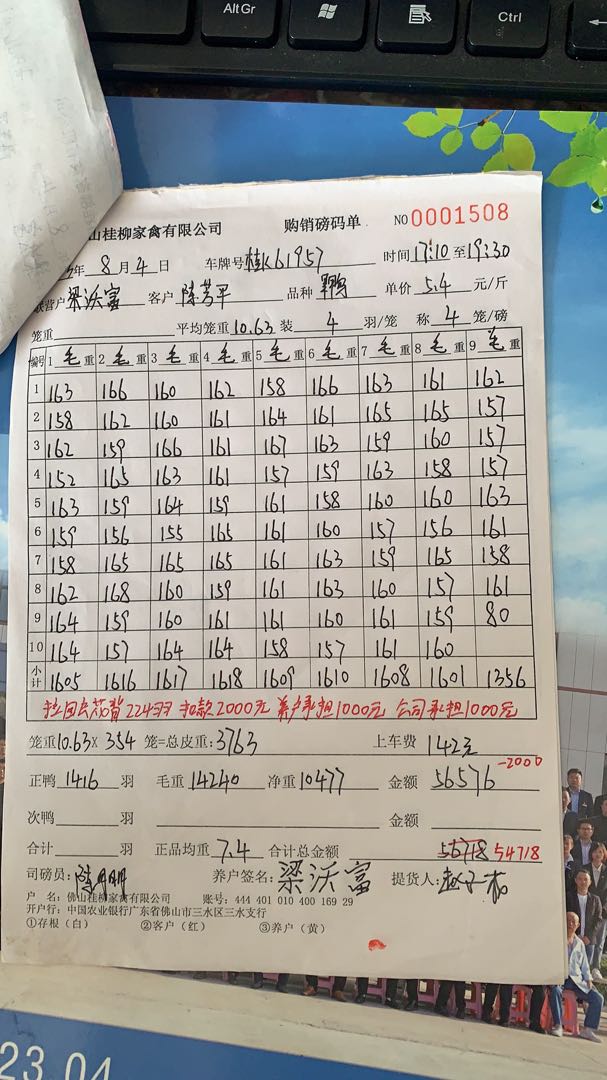 AltGr
Ctrl
山桂柳家禽有限公司 购销磅码单 NO 0001508
年 8 月 4 日 车牌号 桂K61957 时间 17:10 至 19:30
联营户 梁沃富 客户 陈芳平 品种 鸭 单价 5.4 元/斤
笼重 平均笼重 10.63 装 4 羽/笼 称 4 笼/磅
编号 1 毛重 2 毛重 3 毛重 4 毛重 5 毛重 6 毛重 7 毛重 8 毛重 9 毛重
1 163 166 160 162 158 166 163 161 162
2 158 162 160 161 164 161 165 165 157
3 162 159 166 161 167 163 159 160 157
4 152 165 163 161 157 159 163 158 157
5 163 159 164 159 161 158 160 160 163
6 159 156 155 165 161 160 157 156 161
7 158 165 165 165 161 163 159 165 158
8 162 168 160 159 161 163 160 157 161
9 164 159 160 161 161 160 161 159 80
10 164 157 164 164 158 157 161 160
小计 1605 1616 1617 1618 1609 1610 1608 1601 1356
224羽 扣款2000元 养户承担1000元 公司承担1000元
笼重 10.63 × 354 笼=总皮重: 3763 上车费 142元
正鸭 1416 羽 毛重 14240 净重 10477 金额 56576 -2000
次鸭 羽 金额
合计 羽 正品均重 7.4 合计总金额 56718 54718
司磅员: 陈明明 养户签名: 梁沃富 提货人:
户 名: 佛山桂柳家禽有限公司 账号: 444 401 010 400 169 29
开户行: 中国农业银行广东省佛山市三水区三水支行
①存根（白） ②客户（红） ③养户（黄）
23.04